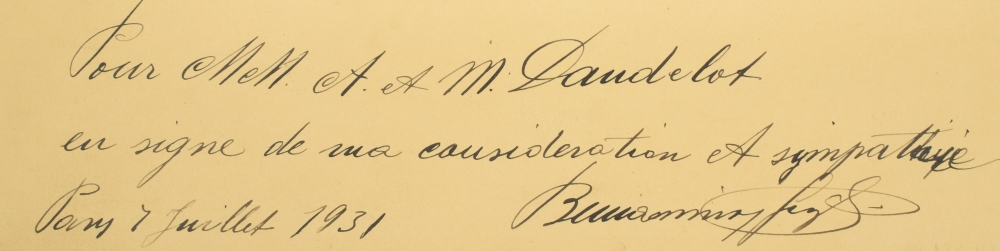 Pour MM. A. et M. Dandelot
en signe de ma consideration et sympathie
Paris 7 Juillet 1931 Beniamino Gigli